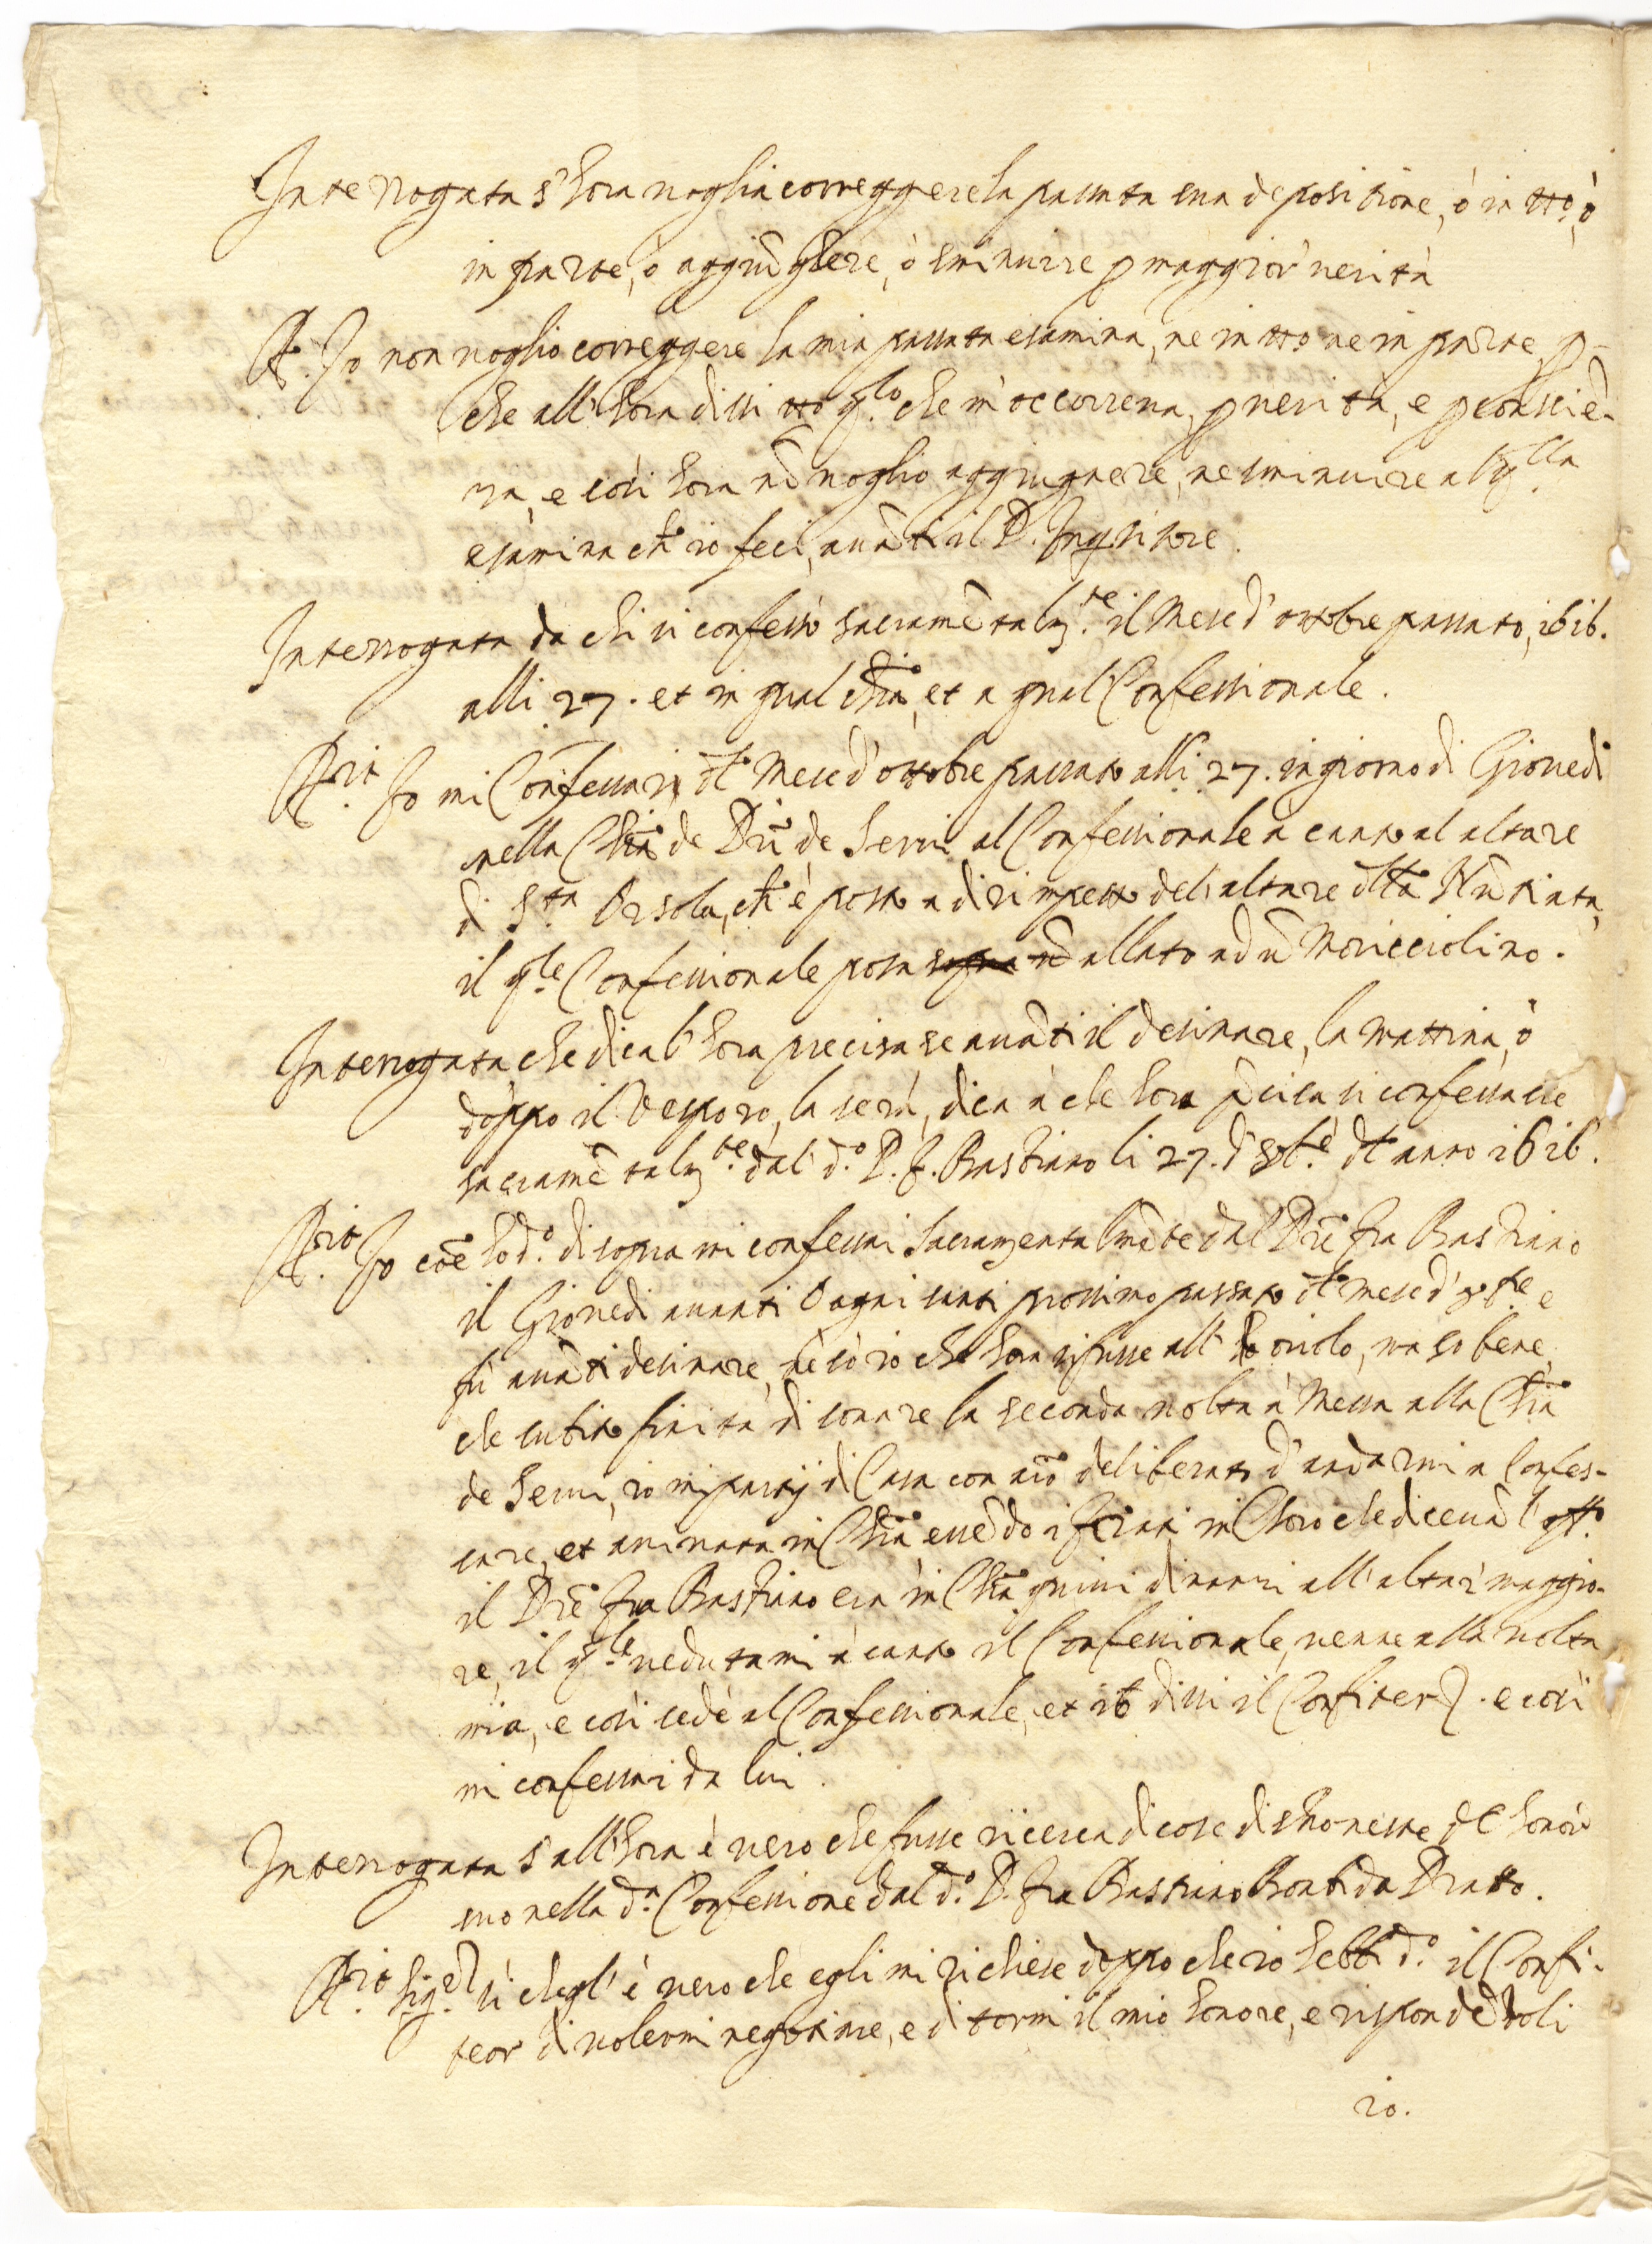 Interrogata s'hora voglia correggere la passata sua depositione, ò in tto, ò
in parte, ò aggiũghere, ò sminuire p maggior verità
R. Io non voglio correggere la mia passata esamina, ne in tto ne in parte, p-
che all'hora dissi tto q.lo che m'occorreva, p verità, e p conscie-
za, e così hora nõ voglio aggiugnere, ne sminuire al q.lla
esamina ch'io feci, avãti il P. Inqsitore.
Interrogata da chi si confessò sacramẽtalm.te il Mese d'ottobre passato, 1616.
alli 27. et in qual Chia, et a qual Confessionale.
R. Io mi Confessai il dto Mese d'ottobre passato alli 27. in giorno di Giovedi
nella Chia de Pri de Servi al Confessionale a canto al altare
di S.ta Orsola, ch'è posto a dirimpetto dell'altare dlla Nũtiata,
il q.le Confessionale posa allato ad ũ Moricciolino.
Interrogata, che dica l'hora precisa se avãti il desinare, la mattina, ò
doppo il Vesporo, la sera, dica à che hora pcisa si confessasse
sacramẽtalm.te dal d.o P. f. Bastiano li 27. d'8bre dto anno 1616.
R. Io coe ho d.o di sopra mi confessai Sacramentalmẽte dal Pre fra Bastiano
il Giovedi avanti Ognissanti prossimo passato dto mese d'8bre e
fù avãti desinare, nè sò io che hora si fusse all' oriolo, ma so bene,
che subito finita di sonare la seconda volta à Messa alla Chia
de Servi, io mi partij di Casa con aio deliberato d'andarmi a Confes-
sare, et arrivata in Chia, essẽdo i frati in Choro che dicevã l'offo
il Pre fra Bastiano era in Chia quivi dinanzi all'altar maggio-
re, il q.le vedutami à canto il Confessionale, venne alla volta
mia, e così sedè al Confessionale, et io dissi il Confiteor. e così
mi confessai da lui.
Interrogata s'all'hora è vero che fusse ricerca di cose dishoneste dl honor
suo nella d.a Confessione dal d.o P. fra Bastiano Bonti da Prato.
R. Sig.r sì che gl'è vero che egli mi richiese doppo che io hebbi d.o il Confi-
teor di volermi negotiare, e di tormi il mio honore, e rispondẽdoli
io.